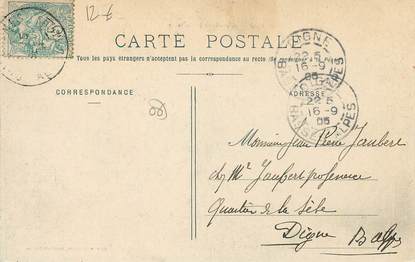 12-€
CARTE POSTALE
Tous les pays étrangers n'acceptent pas la correspondance au recto
CORRESPONDANCE
ADRESSE
DIGNE
22 5
16 -9
05
BASSES ALPES
22 5
16 -9
05
Monsieur Jean Pierre Jaubert
chez Mr Jaubert professeur
Quartier de la Sèbe
Digne B. Alpes